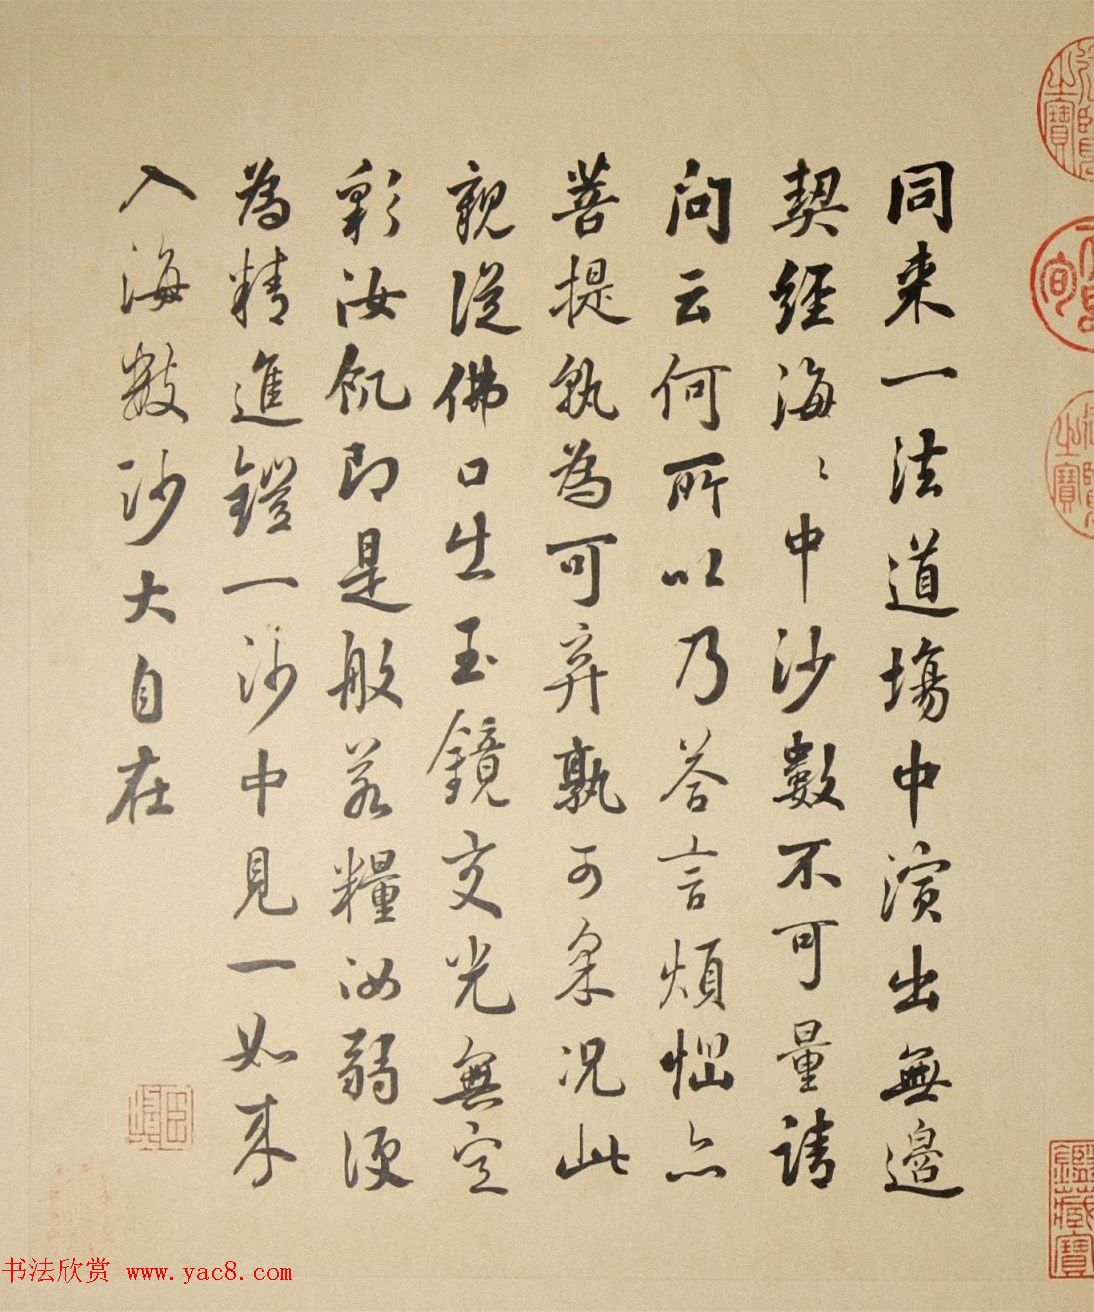 同来一法道場中演出無邊
契經海〻中沙數不可量請
问云何所以乃答言煩惱亦
菩提孰為可弃孰可采况此
親從佛口生玉鏡交光無定
彩汝飢即是般若糧汝弱便
為精進鎧一沙中見一如来
入海數沙大自在
鑑藏寶
书法欣赏 www.yac8.com